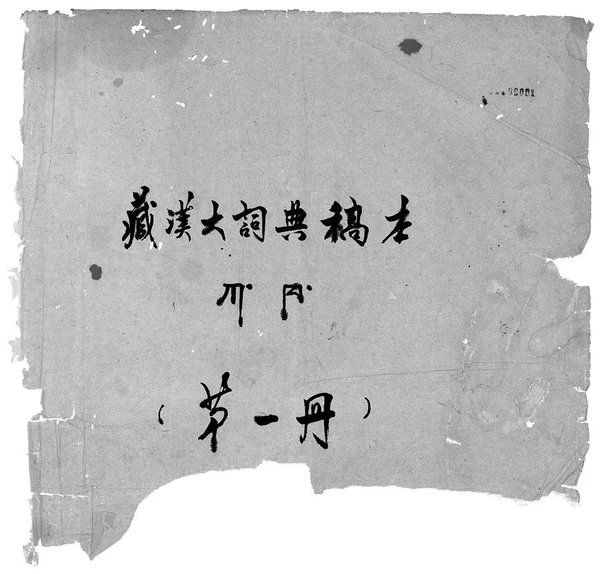 00001
藏漢大詞典稿本
ཀ་
(第一冊)